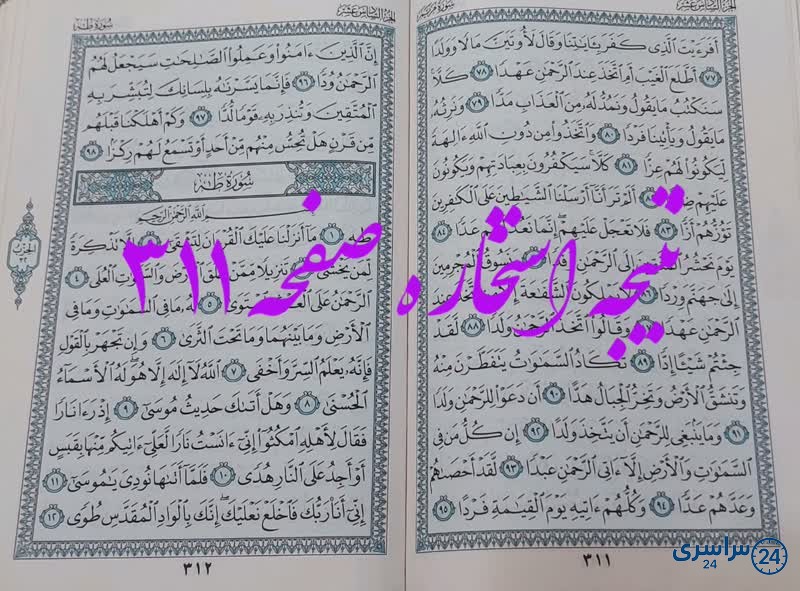 الجزء السادس عشر
سورة مريم
أَفَرَءَيْتَ ٱلَّذِى كَفَرَ بِـَٔايَـٰتِنَا وَقَالَ لَأُوتَيَنَّ مَالًا وَوَلَدًا
٧٧ أَطَّلَعَ ٱلْغَيْبَ أَمِ ٱتَّخَذَ عِندَ ٱلرَّحْمَـٰنِ عَهْدًا ٧٨ كَلَّا
سَنَكْتُبُ مَا يَقُولُ وَنَمُدُّ لَهُۥ مِنَ ٱلْعَذَابِ مَدًّا ٧٩ وَنَرِثُهُۥ
مَا يَقُولُ وَيَأْتِينَا فَرْدًا ٨٠ وَٱتَّخَذُوا۟ مِن دُونِ ٱللَّهِ ءَالِهَةً
لِّيَكُونُوا۟ لَهُمْ عِزًّا ٨١ كَلَّا سَيَكْفُرُونَ بِعِبَادَتِهِمْ وَيَكُونُونَ
عَلَيْهِمْ أَلَمْ تَرَ أَنَّآ أَرْسَلْنَا ٱلشَّيَـٰطِينَ عَلَى ٱلْكَـٰفِرِينَ
تَؤُزُّهُمْ أَزًّا ٨٣ فَلَا تَعْجَلْ عَلَيْهِمْ إِنَّمَا نَعُدُّ لَهُمْ عَدًّا ٨٤
يَوْمَ نَحْشُرُ إِلَى ٱلرَّحْمَـٰنِ وَنَسُوقُ ٱلْمُجْرِمِينَ
إِلَىٰ جَهَنَّمَ وِرْدًا ٨٦ لَّا يَمْلِكُونَ ٱلشَّفَـٰعَةَ عِندَ
ٱلرَّحْمَـٰنِ عَهْدًا وَقَالُوا۟ ٱتَّخَذَ ٱلرَّحْمَـٰنُ وَلَدًا ٨٨ لَّقَدْ
جِئْتُمْ شَيْـًٔا إِدًّا ٨٩ تَكَادُ ٱلسَّمَـٰوَٰتُ يَتَفَطَّرْنَ مِنْهُ
وَتَنشَقُّ ٱلْأَرْضُ وَتَخِرُّ ٱلْجِبَالُ هَدًّا ٩٠ أَن دَعَوْا۟ لِلرَّحْمَـٰنِ وَلَدًا
٩١ وَمَا يَنۢبَغِى لِلرَّحْمَـٰنِ أَن يَتَّخِذَ وَلَدًا ٩٢ إِن كُلُّ مَن فِى
ٱلسَّمَـٰوَٰتِ وَٱلْأَرْضِ إِلَّآ ءَاتِى ٱلرَّحْمَـٰنِ عَبْدًا ٩٣ لَّقَدْ أَحْصَىٰهُمْ
وَعَدَّهُمْ عَدًّا ٩٤ وَكُلُّهُمْ ءَاتِيهِ يَوْمَ ٱلْقِيَـٰمَةِ فَرْدًا ٩٥
٣١١
الجزء السادس عشر
سورة طه
إِنَّ ٱلَّذِينَ ءَامَنُوا۟ وَعَمِلُوا۟ ٱلصَّـٰلِحَـٰتِ سَيَجْعَلُ لَهُمُ
ٱلرَّحْمَـٰنُ وُدًّا ٩٦ فَإِنَّمَا يَسَّرْنَـٰهُ بِلِسَانِكَ لِتُبَشِّرَ بِهِ
ٱلْمُتَّقِينَ وَتُنذِرَ بِهِۦ قَوْمًا لُّدًّا ٩٧ وَكَمْ أَهْلَكْنَا قَبْلَهُم
مِّن قَرْنٍ هَلْ تُحِسُّ مِنْهُم مِّنْ أَحَدٍ أَوْ تَسْمَعُ لَهُمْ رِكْزًۢا ٩٨
سورة طه
بِسْمِ ٱللَّهِ ٱلرَّحْمَـٰنِ ٱلرَّحِيمِ
طه ١ مَآ أَنزَلْنَا عَلَيْكَ ٱلْقُرْءَانَ لِتَشْقَىٰٓ إِلَّا تَذْكِرَةً
لِّمَن يَخْشَىٰ تَنزِيلًا مِّمَّنْ خَلَقَ ٱلْأَرْضَ وَٱلسَّمَـٰوَٰتِ ٱلْعُلَى ٤
ٱلرَّحْمَـٰنُ عَلَى ٱلْعَرْشِ ٱسْتَوَىٰ ٥ لَهُۥ مَا فِى ٱلسَّمَـٰوَٰتِ وَمَا فِى
ٱلْأَرْضِ وَمَا بَيْنَهُمَا وَمَا تَحْتَ ٱلثَّرَىٰ ٦ وَإِن تَجْهَرْ بِٱلْقَوْلِ
فَإِنَّهُۥ يَعْلَمُ ٱلسِّرَّ وَأَخْفَى ٧ ٱللَّهُ لَآ إِلَـٰهَ إِلَّا هُوَ لَهُ ٱلْأَسْمَآءُ
ٱلْحُسْنَىٰ ٨ وَهَلْ أَتَىٰكَ حَدِيثُ مُوسَىٰٓ ٩ إِذْ رَءَا نَارًا
فَقَالَ لِأَهْلِهِ ٱمْكُثُوٓا۟ إِنِّىٓ ءَانَسْتُ نَارًا لَّعَلِّىٓ ءَاتِيكُم مِّنْهَا بِقَبَسٍ
أَوْ أَجِدُ عَلَى ٱلنَّارِ هُدًى ١٠ فَلَمَّآ أَتَىٰهَا نُودِىَ يَـٰمُوسَىٰٓ ١١
إِنِّىٓ أَنَا۠ رَبُّكَ فَٱخْلَعْ نَعْلَيْكَ إِنَّكَ بِٱلْوَادِ ٱلْمُقَدَّسِ طُوًى ١٢
٣١٢
الحزب
٣٢
نتیجه استخاره صفحه ۳۱۱
سراسری 24
24